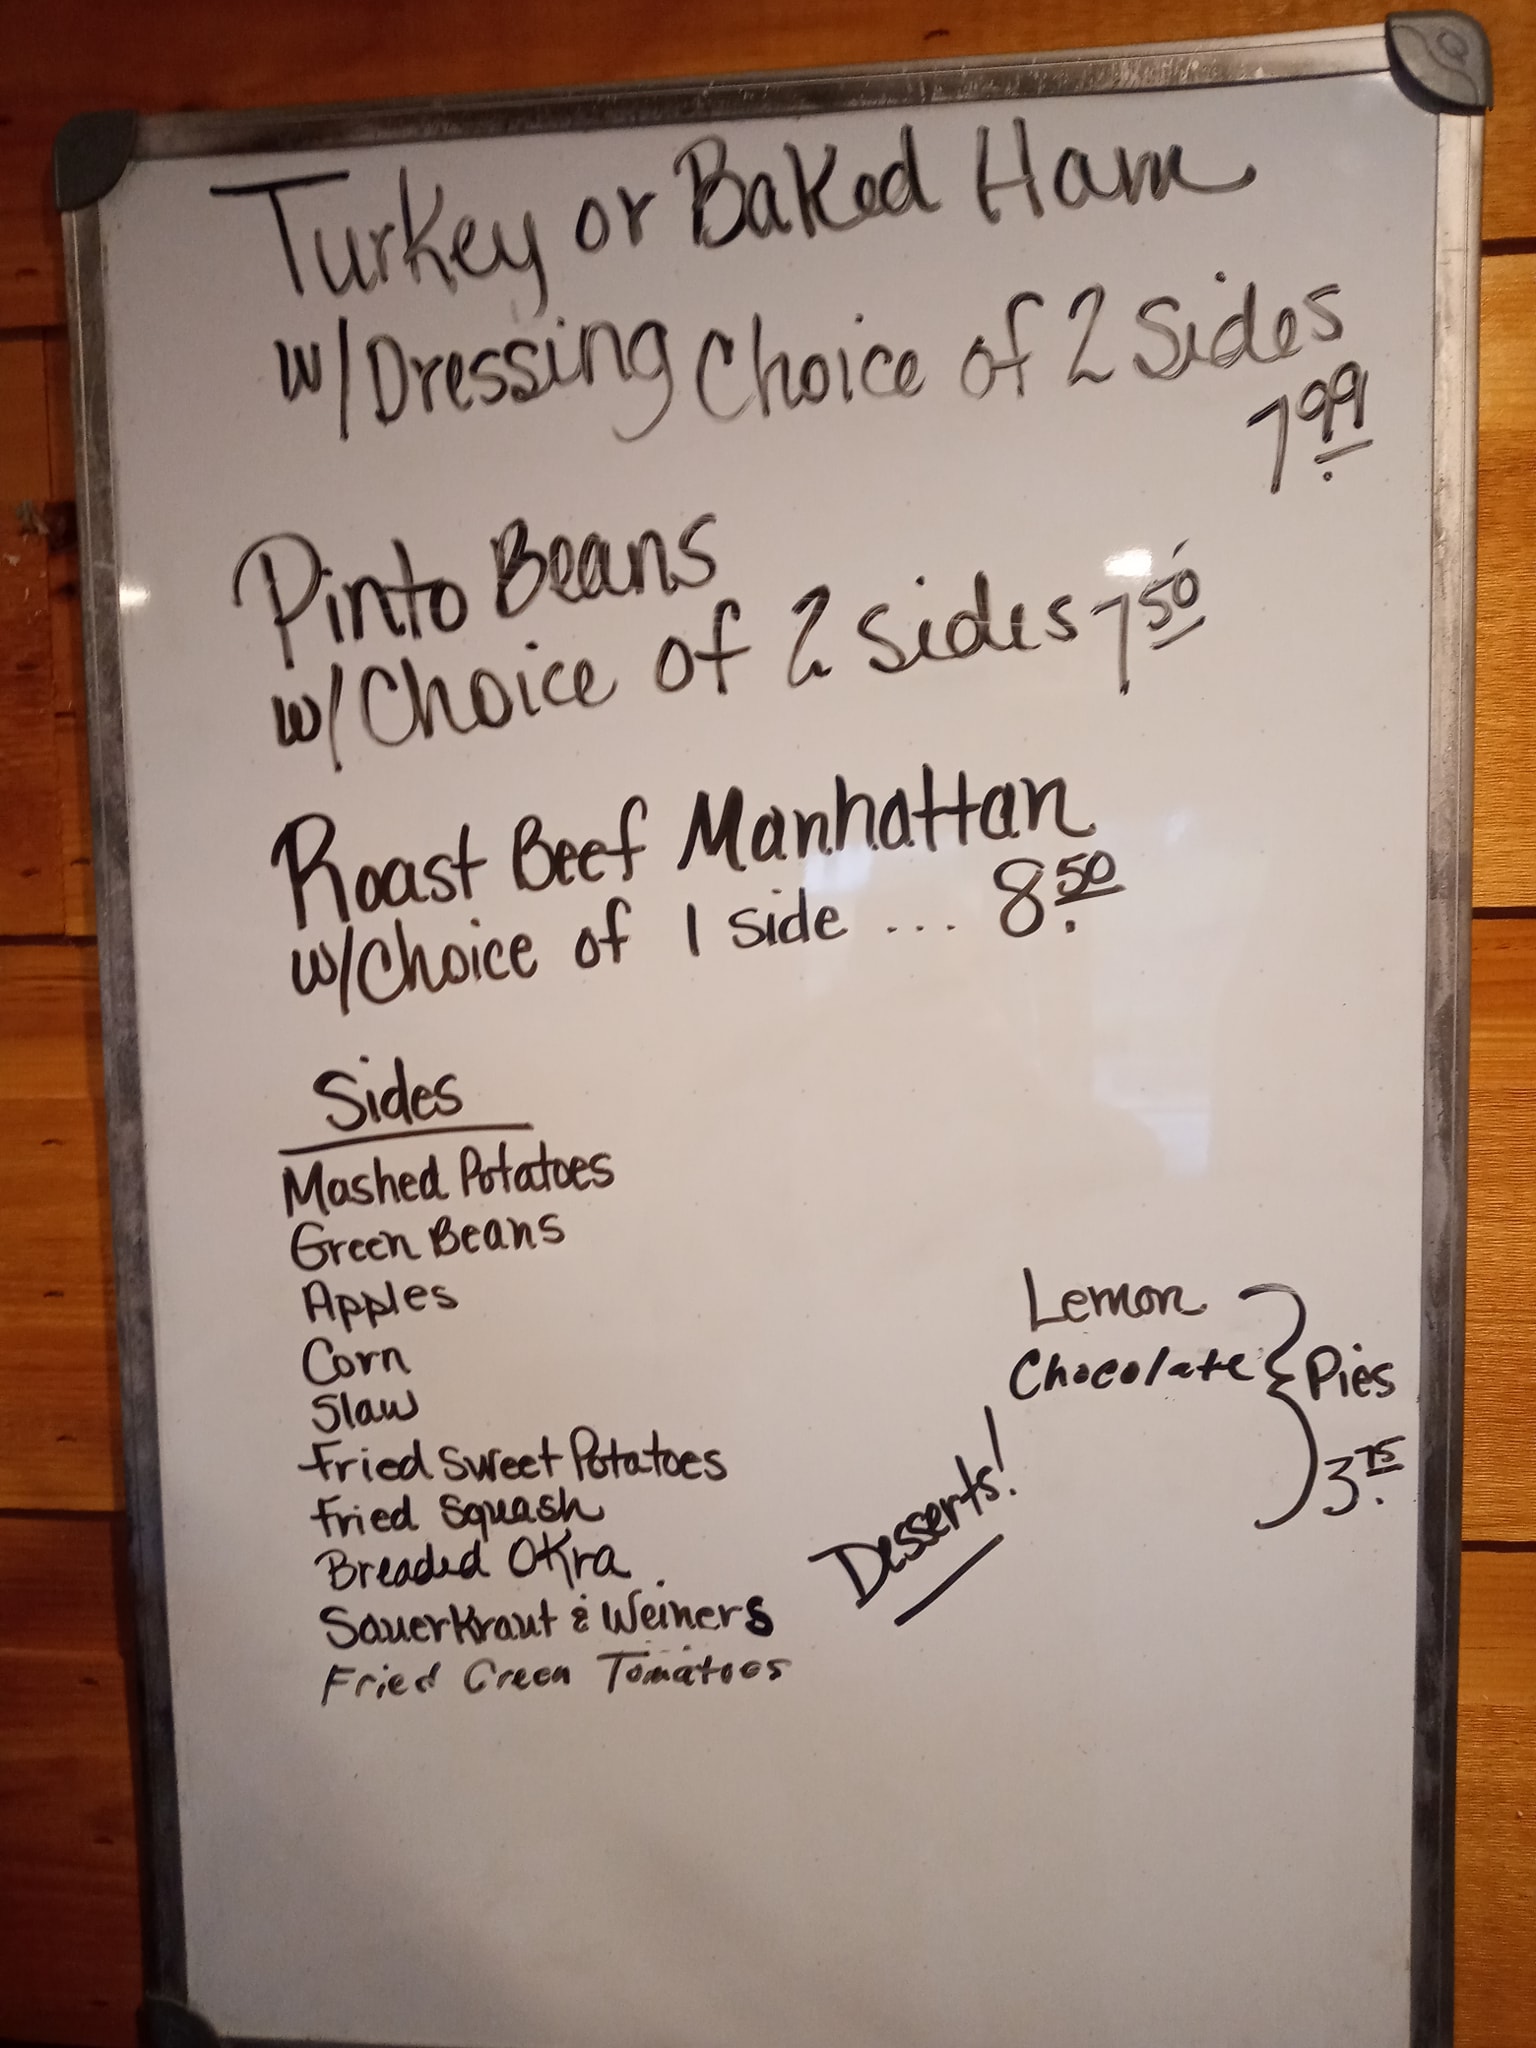 Turkey or Baked Ham
w/Dressing Choice of 2 Sides
7.99
Pinto Beans
w/Choice of 2 Sides 7.50
Roast Beef Manhattan
w/Choice of 1 side ... 8.50
Sides
Mashed Potatoes
Green Beans
Apples
Corn
Slaw
Fried Sweet Potatoes
Fried Squash
Breaded Okra
Sauerkraut & Weiners
Fried Green Tomatoes
Desserts!
Lemon
Chocolate } Pies
3.75